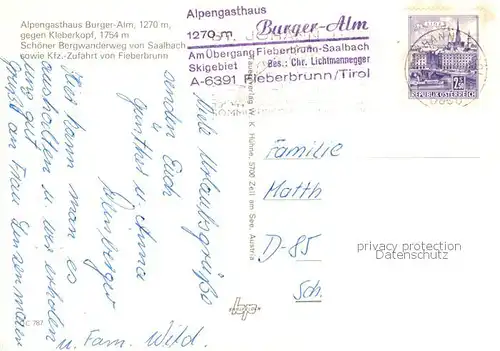 Alpengasthaus Burger-Alm, 1270 m,
gegen Kleberkopf, 1754 m
Schöner Bergwanderweg von Saalbach
sowie Kfz.-Zufahrt von Fieberbrunn
Alpengasthaus
1270 m Burger-Alm
Am Übergang Fieberbrunn-Saalbach
Skigebiet Bes.: Chr. Lichtmannegger
A-6391 Fieberbrunn/Tirol
REPUBLIK ÖSTERREICH
W. K. Hühne, 5700 Zell am See, Austria
Viele Urlaubsgrüße
senden Euch
Günther u. Anna
Hier kann man es
aushalten u. wir erholen
uns gut
grüßt an Frau
u. Fam. Wild.
Familie
Matth
D-85
Sch.
privacy protection
Datenschutz
C 787